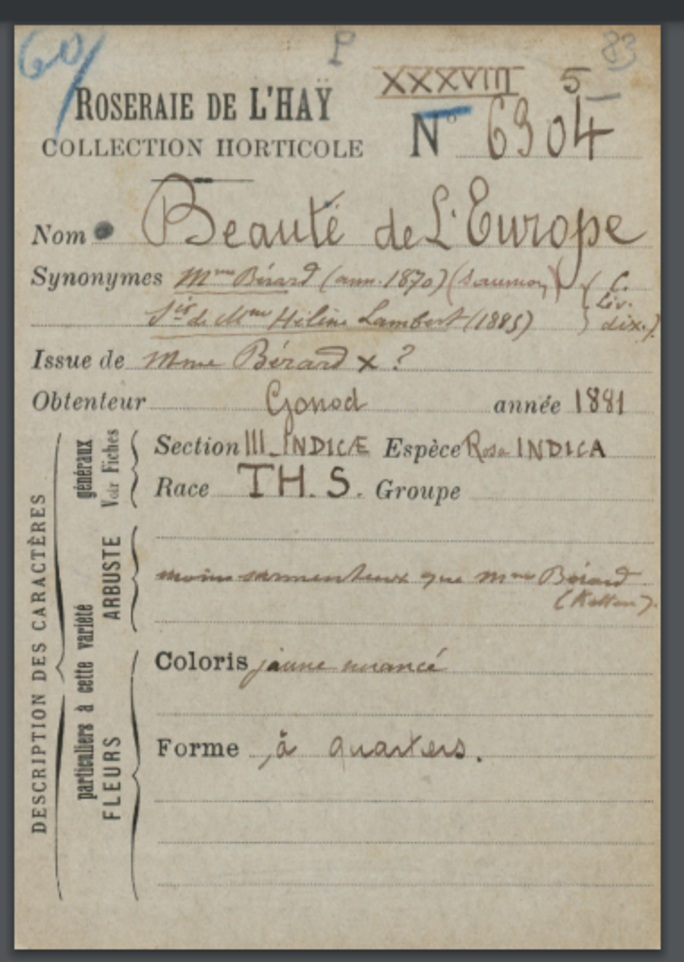 60/ P 83
XXXVIII 5
ROSERAIE DE L'HAŸ
COLLECTION HORTICOLE
N° 6904
Nom Beauté de L'Europe
Synonymes Mme Bérard (ann. 1870) (saumon) (C.
Sis de Mme Hélène Lambert (1885) Liv. dix.)
Issue de Mme Bérard x ?
Obtenteur Gonod année 1881
Section III_INDICÆ Espèce Rosa INDICA
Race TH. S. Groupe
DESCRIPTION DES CARACTÈRES
généraux
Voir Fiches
particuliers à cette variété
ARBUSTE
moins sarmenteux que Mme Bérard
(Ketten).
FLEURS
Coloris jaune nuancé
Forme à quarters.